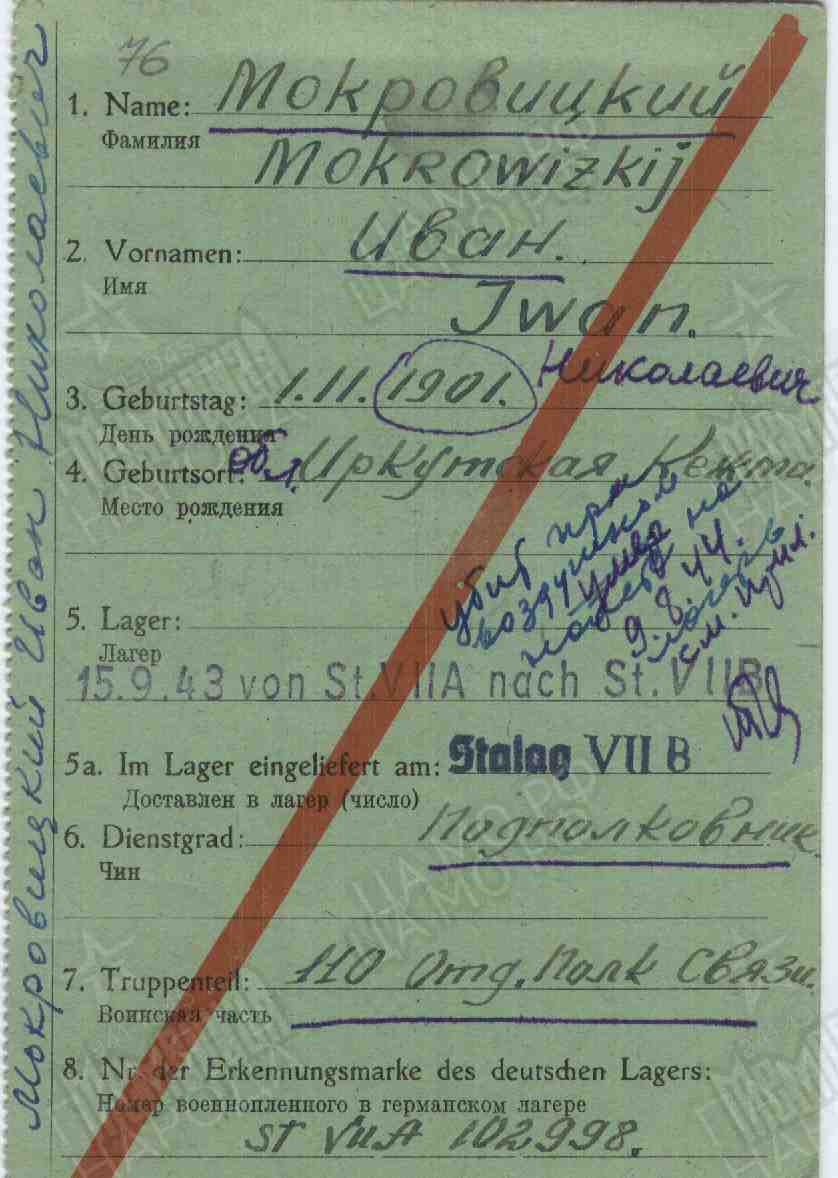 76
1. Name: Мокровицкий
Фамилия
Mokrowizkij
2. Vornamen: Иван.
Имя
Iwan.
Николаевич
3. Geburtstag: 1.11.1901.
День рождения
4. Geburtsort: обл. Иркутская
Место рождения
убит при
воздушном
налете на
9.8.44.
5. Lager:
Лагерь
15.9.43 von St.VIIA nach St.VIIB
5a. Im Lager eingeliefert am: Stalag VII B
Доставлен в лагерь (число)
6. Dienstgrad: Подполковник.
Чин
7. Truppenteil: 110 Отд. Полк Связи.
Воинская часть
8. Nr. der Erkennungsmarke des deutschen Lagers:
Номер военнопленного в германском лагере
St VIIA 102998.
Мокровицкий Иван Николаевич